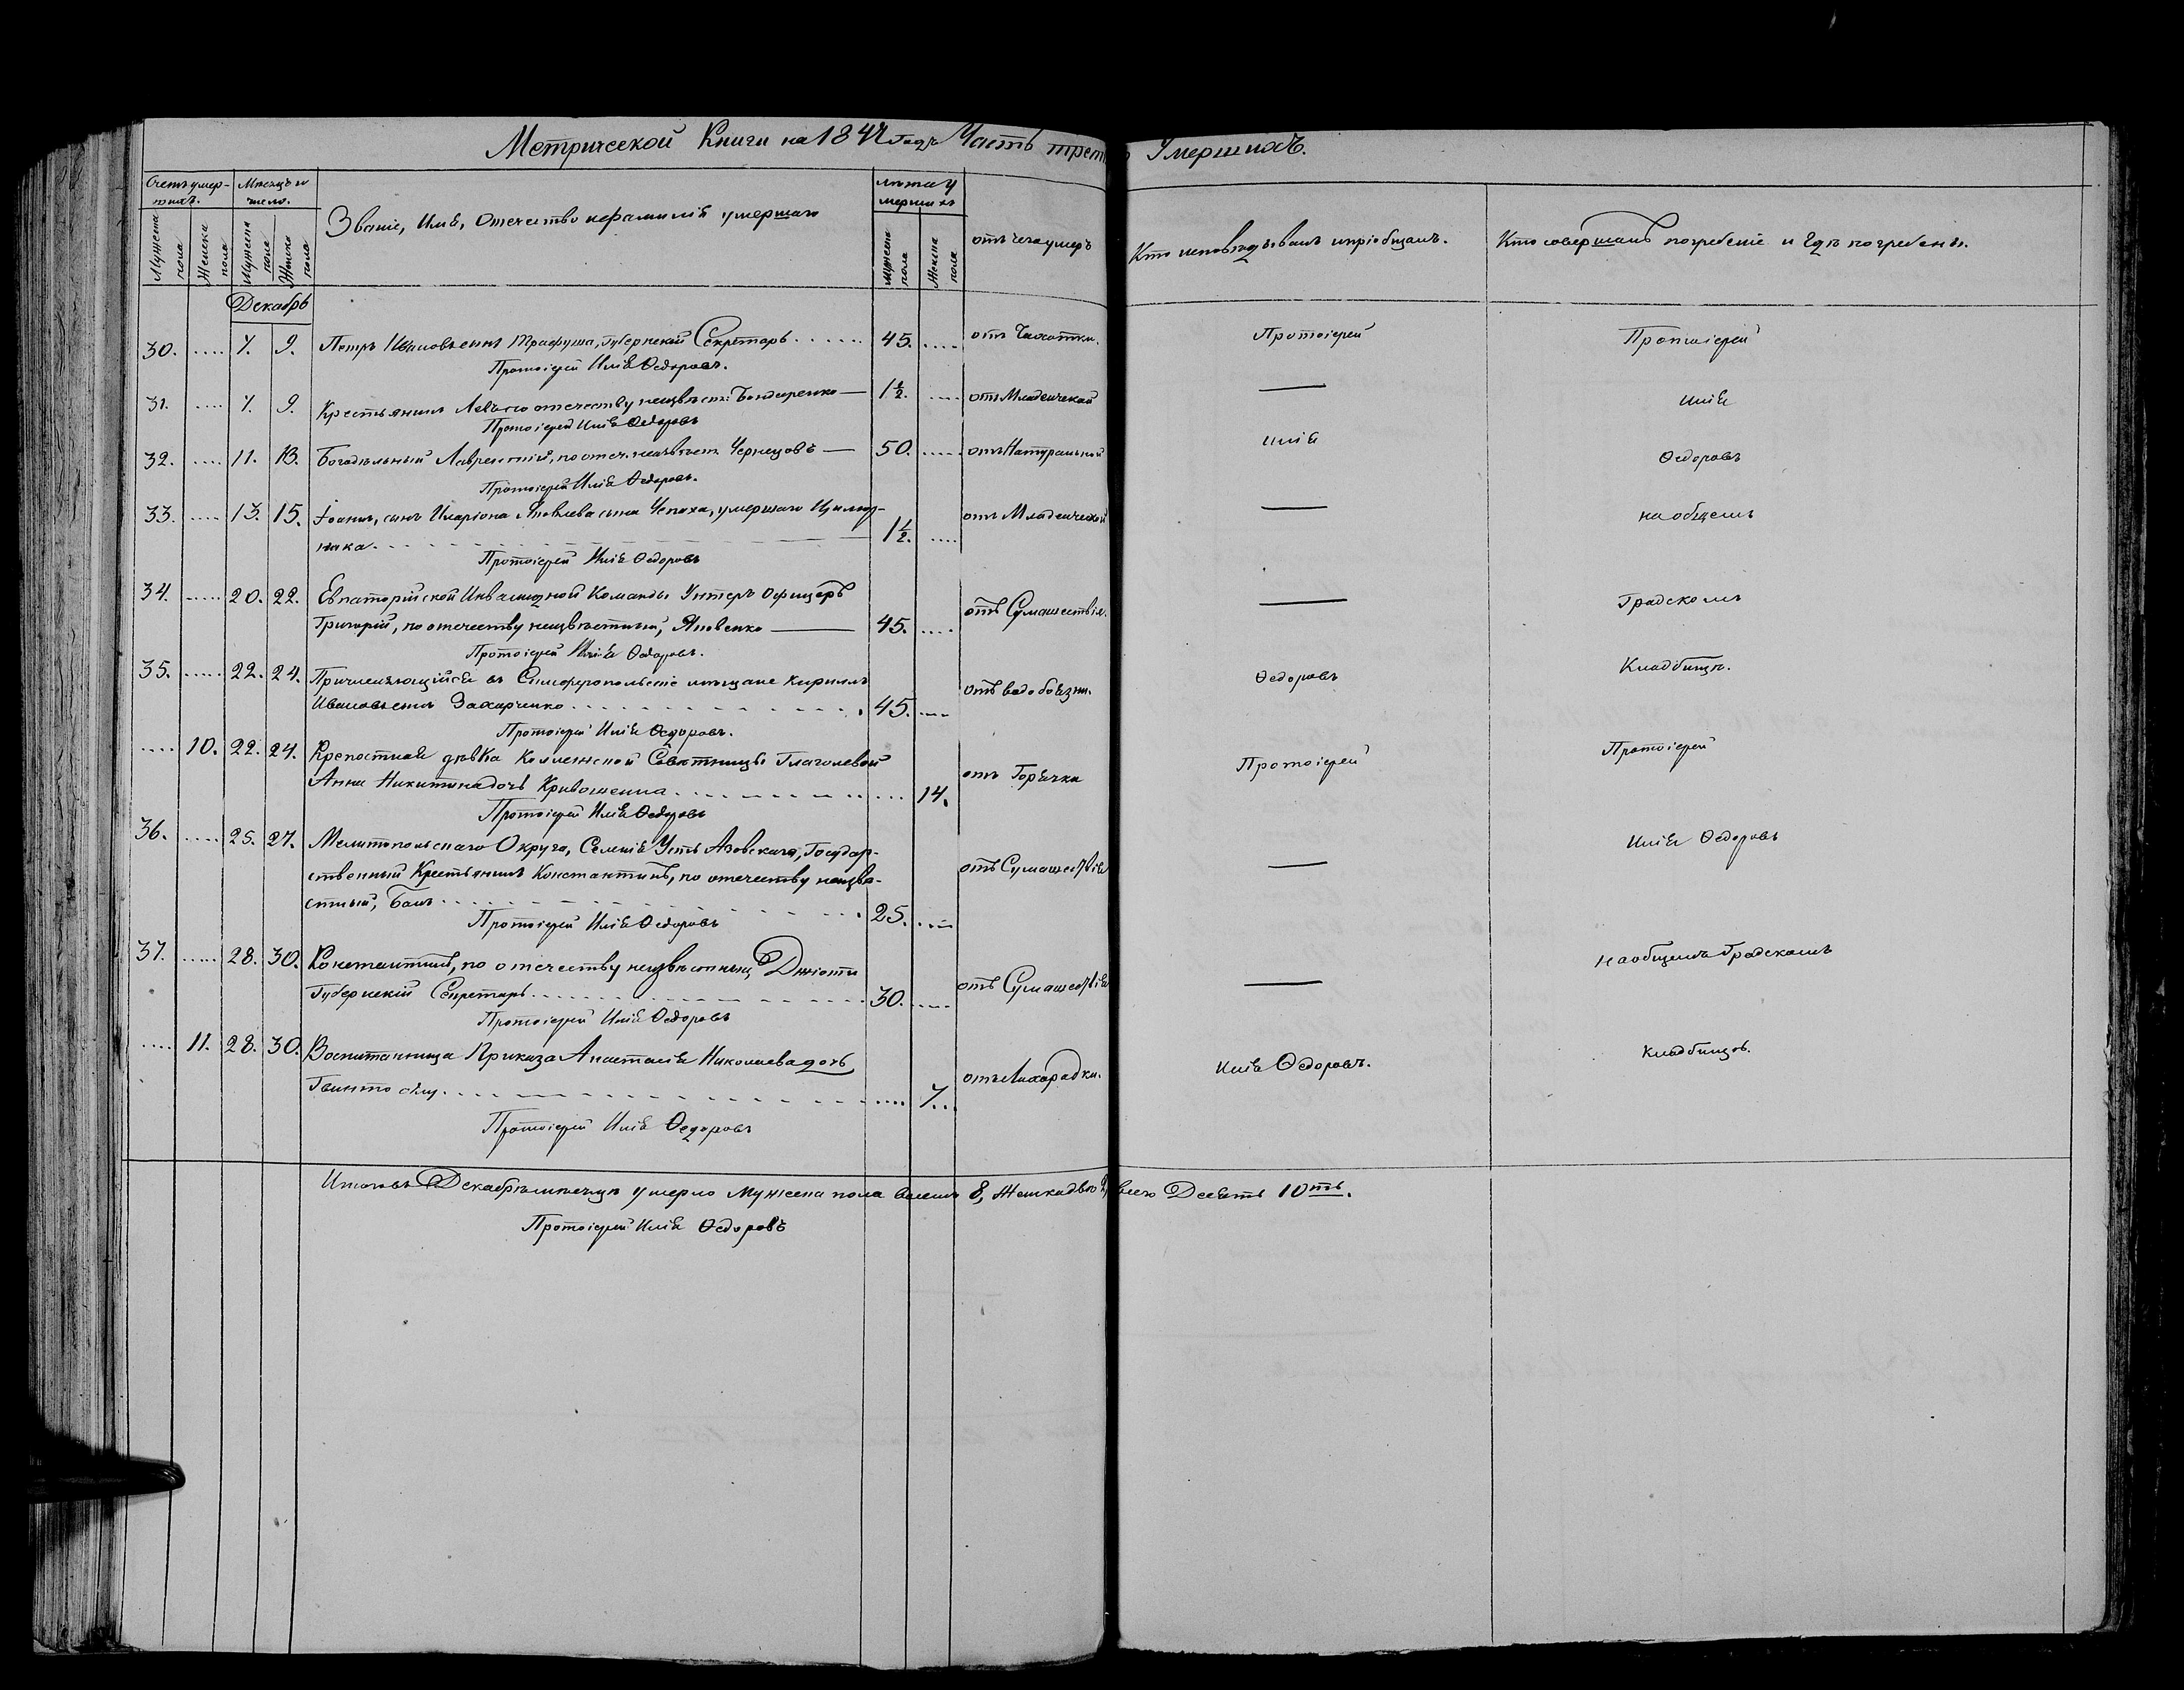 Метрической Книги на 1847 Годъ Часть трет Умершихъ.
Счетъ умер-
шихъ.
Мѣсяцъ и
число.
Званіе, Имя, Отечество и фамилія умершаго
лѣта у
мершихъ
отъ чего умеръ
Кто исповѣдывалъ и пріобщалъ.
Кто совершалъ погребеніе и гдѣ погребены.
Мужеска пола
Женска пола
Мужеска пола
Женска пола
Мужеска пола
Женска пола
Декабрь
30. .... 7. 9. Петръ Ивановъ сынъ Губернскій Секретарь 45. .... отъ Чахотки. Протоіерей Протоіерей
Протоіерей Илія Ѳедоровъ.
31. .... 7. 9. Крестьянинъ отечеству неизвѣст: Бондаренко — 1½. .... отъ Младенческой — Илія
Протоіерей Илія Ѳедоровъ
32. .... 11. 13. Богадѣльный Лаврентій, по отеч. неизвѣст. Чернецовъ — 50. .... отъ Натуральной Илія Ѳедоровъ
Протоіерей Илія Ѳедоровъ.
33. .... 13. 15. Іоаннъ, сынъ Иларіона Яковлева сына Чепаха, умершаго
ника. 1½. .... отъ Младенческой — на общемъ
Протоіерей Илія Ѳедоровъ
34. .... 20. 22. Евпаторійской Инвалидной Команды Унтеръ Офицеръ
Григорій, по отечеству неизвѣстный, Яковенко — 45. .... отъ Сумашествія. — Градскомъ
Протоіерей Илія Ѳедоровъ.
35. .... 22. 24. Причисляющійся въ Симферопольскіе мѣщане Кириллъ
Ивановъ сынъ Захарченко 45. .... отъ водобоязни. Ѳедоровъ Кладбищѣ.
Протоіерей Илія Ѳедоровъ.
.... 10. 22. 24. Крепостная дѣвка Коллежской Совѣтницы Глаголевой
Анна Никитина дочь Кривошеина .... 14. отъ Горячки Протоіерей Протоіерей
Протоіерей Илія Ѳедоровъ
36. .... 25. 27. Мелитопольскаго Округа, Селенія Усть Азовскаго, Государ-
ственный Крестьянинъ Константинъ, по отечеству неизвѣ-
стный, 25. .... отъ Сумашествія — Илія Ѳедоровъ
Протоіерей Илія Ѳедоровъ
37. .... 28. 30. Константинъ, по отечеству неизвѣстный,
Губернскій Секретарь 30. .... отъ Сумашествія — на общемъ Градскомъ
Протоіерей Илія Ѳедоровъ
.... 11. 28. 30. Воспитанница Приказа Анастасія Николаева дочь
.... 7... отъ Лихорадки. Илія Ѳедоровъ. Кладбищѣ.
Протоіерей Илія Ѳедоровъ
Итого въ Декабрѣ мѣсяцѣ умерло Мужеска пола восемь 8, Женска двѣ 2, всего Десять 10ть.
Протоіерей Илія Ѳедоровъ